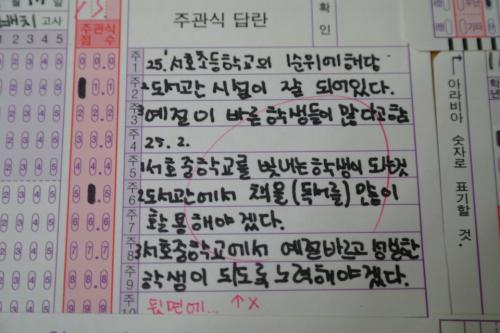 배치 고사
주관식 점수
주관식 답란
확 인
1 2 3 4 5
주1 25.1 서호초등학교의 순위에 해당
주2 2도서관 시설이 잘 되어있다.
주3 3예절이 바른 학생들이 많다고함
주4 25.2.
주5 1서호중학교를 빛내는 학생이 되는것
주6 2도서관에서 책을(독서를) 많이
주7 활용해야겠다.
주8 3서호중학교에서 예절바르고 성실한
주9 학생이 되도록 노력해야겠다.
뒷면에... ↑ X
↑ 아라비아 숫자로 표기할 것.